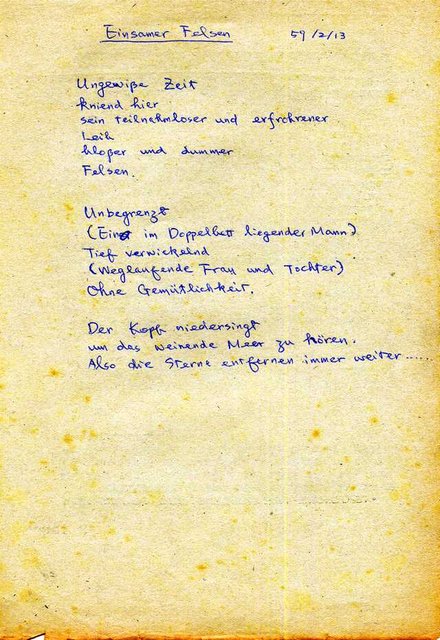 Einsamer Felsen 59/2/13
Ungewiße Zeit
kniend hier
sein teilnahmloser und erfrohrener
Leib
bloßer und dummer
Felsen.
Unbegrenzt
(Ein im Doppelbett liegender Mann)
Tief verwickelnd
(Weglaufende Frau und Tochter)
Ohne Gemütlichkeit.
Der Kopf niedersingt
um das weinende Meer zu hören.
Also die Sterne entfernen immer weiter......